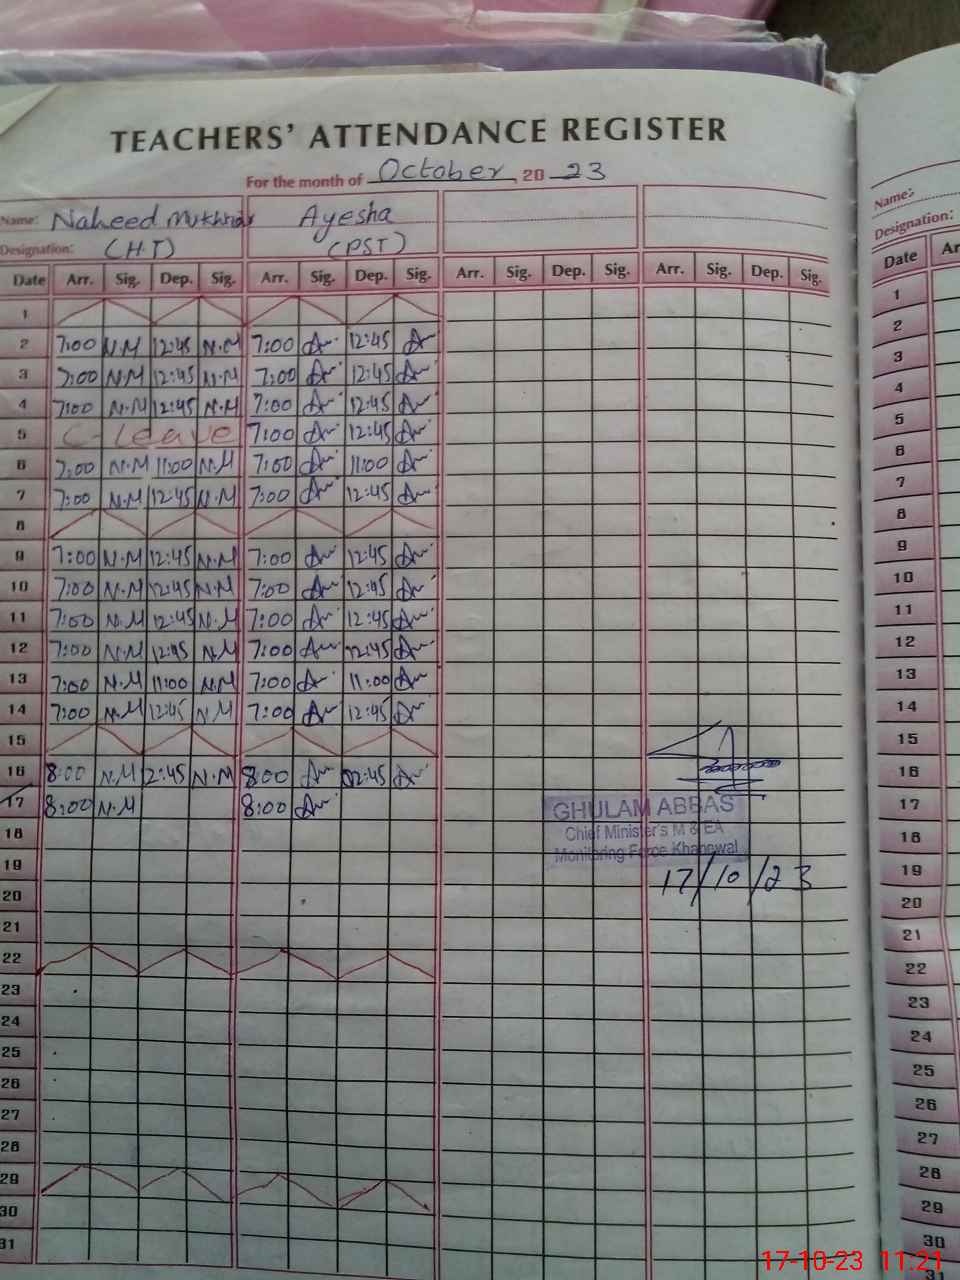 TEACHERS' ATTENDANCE REGISTER
For the month of October, 20 23
Name: Naheed Mukhtar Ayesha
Designation: (H.T) (PST)
Date Arr. Sig. Dep. Sig. Arr. Sig. Dep. Sig. Arr. Sig. Dep. Sig. Arr. Sig. Dep. Sig.
1
2 7:00 N.M 12:45 N.M 7:00 12:45
3 7:00 N.M 12:45 N.M 7:00 12:45
4 7:00 N.M 12:45 N.M 7:00 12:45
5 C-Leave 7:00 12:45
6 7:00 N.M 11:00 N.M 7:00 11:00
7 7:00 N.M 12:45 N.M 7:00 12:45
8
9 7:00 N.M 12:45 N.M 7:00 12:45
10 7:00 N.M 12:45 N.M 7:00 12:45
11 7:00 N.M 12:45 N.M 7:00 12:45
12 7:00 N.M 12:45 N.M 7:00 12:45
13 7:00 N.M 11:00 N.M 7:00 11:00
14 7:00 N.M 12:45 N.M 7:00 12:45
15
16 8:00 N.M 2:45 N.M 8:00 02:45
17 8:00 N.M 8:00
GHULAM ABBAS
Chief Minister's M & EA
Monitoring Force Khanewal
17/10/23
18
19
20
21
22
23
24
25
26
27
28
29
30
31
Name:
Designation:
Date Ar
1
2
3
4
5
6
7
8
9
10
11
12
13
14
15
16
17
18
19
20
21
22
23
24
25
26
27
28
29
30
31
17-10-23 11:21